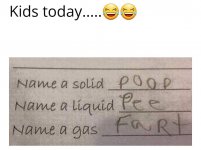 Kids today.....😂😂
Name a solid poop
Name a liquid Pee
Name a gas FaRt